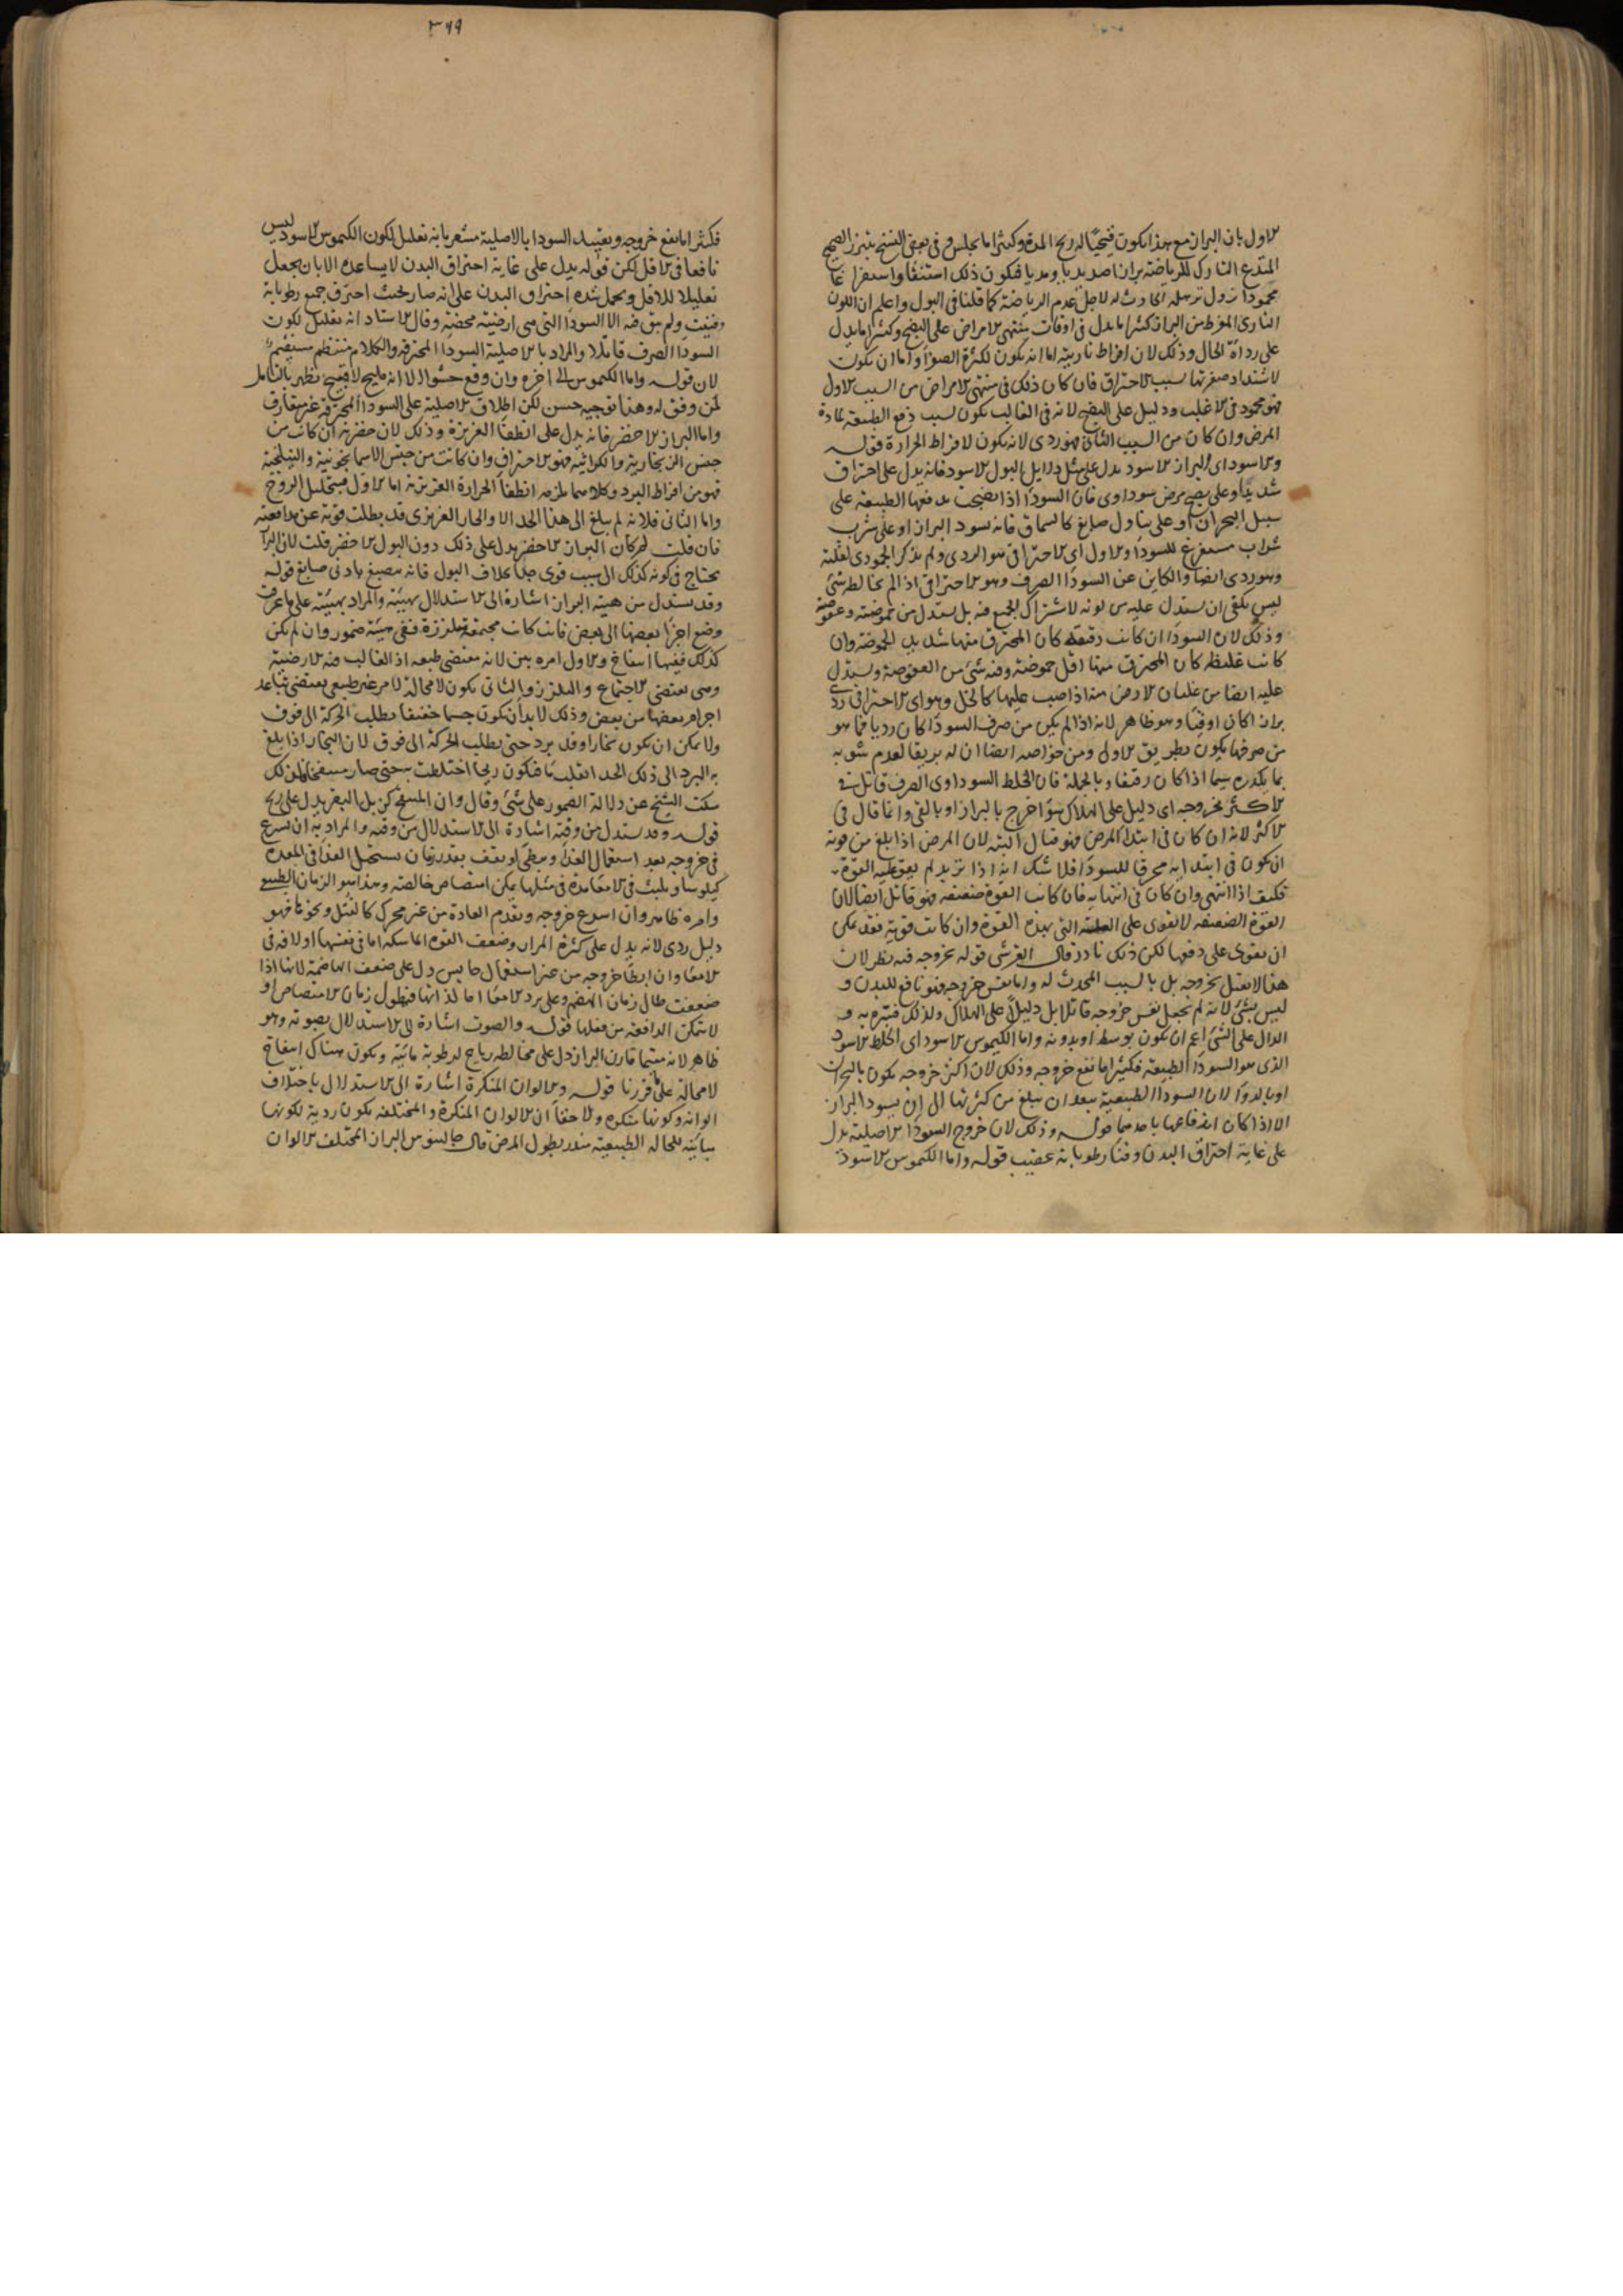 الاول بان البراز مع هذا يكون قيحيا له ريح المدة وكثيرا ما يجلس وفى بعض النسخ يتبرز الصحيح
المتدع التارك للرياضة برازا صديديا ومديا فيكون ذلك استنقا واستفراغا
محمودا يزول ترهله الحادث له لاجل عدم الرياضة كما قلنا فى البول واعلم ان اللون
النارى المفرط من البراز كثيرا ما يدل فى اوقات منتهى الامراض على النضج وكثيرا ما يدل
على رداة الحال وذلك لان افراط ناريته اما ان يكون لكثرة الصفرا واما ان يكون
لاشتداد صفرتها لسبب الاحتراق فان كان ذلك فى منتهى الامراض من السبب الاول
فهو محمود فى الاغلب ودليل على النضج لانه فى الغالب يكون لسبب دفع الطبيعة لمادة
المرض وان كان من السبب الثانى فهو ردى لانه يكون لافراط الحرارة قوله
والاسود اى البراز الاسود يدل على مثل دلايل البول الاسود فانه يدل على احتراق
شديد او على نضج مرض سوداوى فان السودا اذا نضجت تدفعها الطبيعة على
سبيل البحران او على تناول صابغ كالسماق فانه يسود البراز او على شرب
شراب مستفرغ للسودا والاول اى الاحتراقى هو الردى ولم يذكر الجمودى لقلته
وهو ردى ايضا والكاين عن السودا الصرف وهو الاحتراقى اذا لم يخالطه شئ
ليس يكفى ان يستدل عليه من لونه لاشتراك الجميع فيه بل يستدل من حموضته وعفوصته
وذلك لان السودا ان كانت رقيقة كان المحترق منها شديد الحموضة وان
كانت غليظة كان المحترق منها اقل حموضة وفيه شئ من العفوصة ويستدل
عليه ايضا من غليان الارض منه اذا صب عليها كالخل وهو اى الاحتراقى ردى
برازا كان او قيئا وهو ظاهر لانه اذا لم يكن من صرف السودا كان رديا فما هو
من صرفها يكون بطريق الاولى ومن خواصه ايضا ان له بريقا لعدم شوبه
بما يكدره سيما اذا كان رقيقا وبالجملة فان الخلط السوداوى الصرف قاتل فى
الاكثر بخروجه اى دليل على الهلاك سوا خرج بالبراز او بالقى وانما قال فى
الاكثر لانه ان كان فى ابتدا المرض فهو قتال البتة لان المرض اذا بلغ من قوته
ان يكون فى ابتدايه محرقا للسودا فلا شك انه اذا تزيد لم يقو عليه القوة
فكيف اذا انتهى وان كان فى انتهايه فان كانت القوة ضعيفة فهو قاتل ايضا لان
القوة الضعيفة لا تقوى على العلة التى بهذه القوة وان كانت قوية فقد يمكن
ان تقوى على دفعها لكن ذلك نادر قال القرشى قوله بخروجه فيه نظر لان
هذا لا يقتل بخروجه بل بالسبب المحدث له واما نفس خروجه فهو نافع للبدن و
ليس بشئ لانه لم يجعل نفس خروجه قاتلا بل دليلا على الهلاك ولذلك فسره به و
الدال على الشئ اعم ان يكون بوسط او بدونه واما الكيموس الاسود اى الخلط الاسود
الذى هو السودا الطبيعية فكثيرا ما نفع خروجه وذلك لان اكثر خروجه يكون بالبحران
او بالدوا لان السودا الطبيعية يبعد ان تبلغ من كثرتها الى ان يسود البراز
الا اذا كان اندفاعها باحدهما قوله وذلك لان خروج السودا الاصلية يدل
على غاية احتراق البدن وفنا رطوباته عقيب قوله واما الكيموس الاسود
٣٦٩
فكثيرا ما نفع خروجه وتقييد السودا بالاصلية مشعر بانه تعليل لكون الكيموس الاسود ليس
نافعا فى الاقل لكن قوله يدل على غاية احتراق البدن لا يساعده الا بان يجعل
تعليلا للاقل ويحمل شدة احتراق البدن على انه صار بحيث احترق جميع رطوباته
وفنيت ولم يبق فيه الا السودا التى هى ارضية محضة وقال الاستاد انه تعليل لكون
السودا الصرف قاتلا والمراد بالاصلية السودا المحترقة والكلام منتظم مستقيم
لان قوله واما الكيموس الى اخره وان وقع حشوا الا انه مليح لا قبيح يظهر بالتامل
لمن وفق له وهذا توجيه حسن لكن اطلاق الاصلية على السودا المحترقة غير متعارف
واما البراز الاخضر فانه يدل على انطفا الغريزة وذلك لان خضرته ان كانت من
جنس الزنجارية والكراثية فهو الاحتراق وان كانت من جنس الاسمانجونية والنيلجية
فهو من افراط البرد وكلاهما يلزمه انطفا الحرارة الغريزية اما الاول فبتحليل الروح
واما الثانى فلانه لم يبلغ الى هذا الحد الا والحار الغريزى قد بطلت قوته عن مدافعته
فان قلت لم كان البراز الاخضر يدل على ذلك دون البول الاخضر قلت لان البراز
يحتاج فى كونه كذلك الى سبب قوى جدا بخلاف البول فانه ينصبغ بادنى صابغ قوله
وقد يستدل من هيئة البراز اشارة الى الاستدلال بهيئته والمراد بهيئته على ما عرفت
وضع اجزا بعضها الى بعض فان كانت مجتمعة متلززة ففى هيئته ضمور وان لم يكن
كذلك ففيها انتفاخ والاول امره بين لانه مقتضى طبعه اذ الغالب فيه الارضية
وهى تقتضى الاجتماع والتلزز والثانى يكون لا محالة لامر غير طبيعى يقتضى تباعد
اجرام بعضها من بعض وذلك لا بد ان يكون جسما خفيفا يطلب الحركة الى فوق
ولا يمكن ان يكون بخارا وقد برد حتى يطلب الحركة الى فوق لان البخار اذا بلغ
به البرد الى ذلك الحد انقلب ما فيكون ريحا اختلطت به حتى صار منتفخا فلذلك
سكت الشيخ عن دلالة الضمور على شئ وقال وان المنتفخ كزبل البقر يدل على ريح
قوله وقد يستدل من وقته اشارة الى الاستدلال من وقته والمراد به ان يسرع
فى خروجه بعد استعمال الغذا ويبطى او يقف بقدر زمان يستحيل الغذا فى المعدة
كيلوسا ويلبث فى الامعا مدة فى مثلها يمكن امتصاص خالصته وهذا هو الزمان الطبيعى
وامره ظاهر وان اسرع خروجه وتقدم العادة من غير محرك كالثفل ونحوه فهو
دليل ردى لانه يدل على كثرة المرار وضعف القوة الماسكة اما فى نفسها او لافة فى
الامعا وان ابطا خروجه من غير استعمال حابس دل على ضعف الهاضمة لانها اذا
ضعفت طال زمان الهضم وعلى برد الامعا اما لذاتها فيطول زمان الامتصاص او
لا تتمكن الدافعة من فعلها قوله والصوت اشارة الى الاستدلال بصوته وهو
ظاهر لانه متى ما قارن البراز دل على مخالطة رياح لرطوبة مائية ويكون هناك انتفاخ
لا محالة على ما قررنا قوله والالوان المنكرة اشارة الى الاستدلال باختلاف
الوانه وكونها منكرة ولا خفا ان الالوان المنكرة والمختلفة يكون ردية لكونها
مباينة للحالة الطبيعية منذر بطول المرض قال جالينوس البراز المختلف الالوان